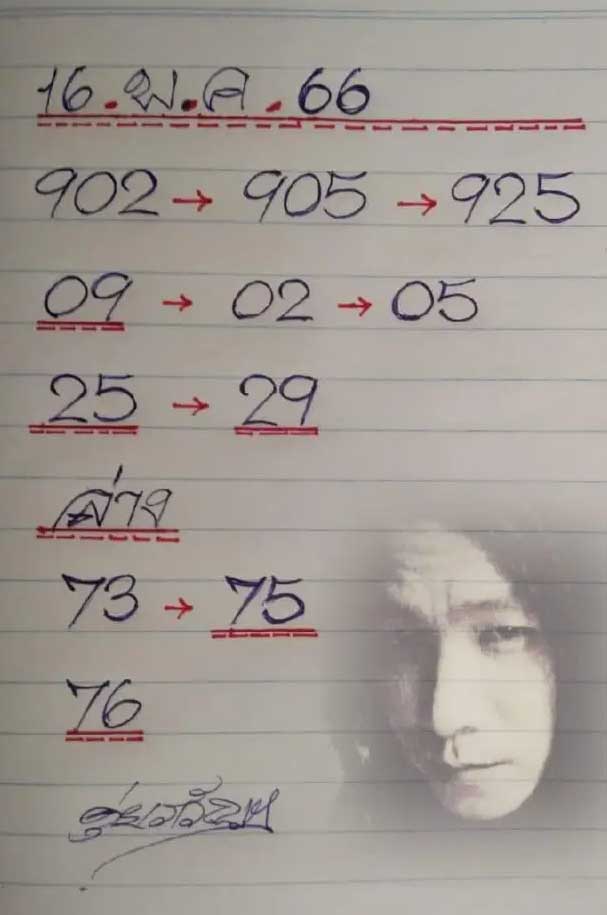 16.พ.ค.66
902→ 905 →925
09 → 02 → 05
25 → 29
ล่าง
73 → 75
76